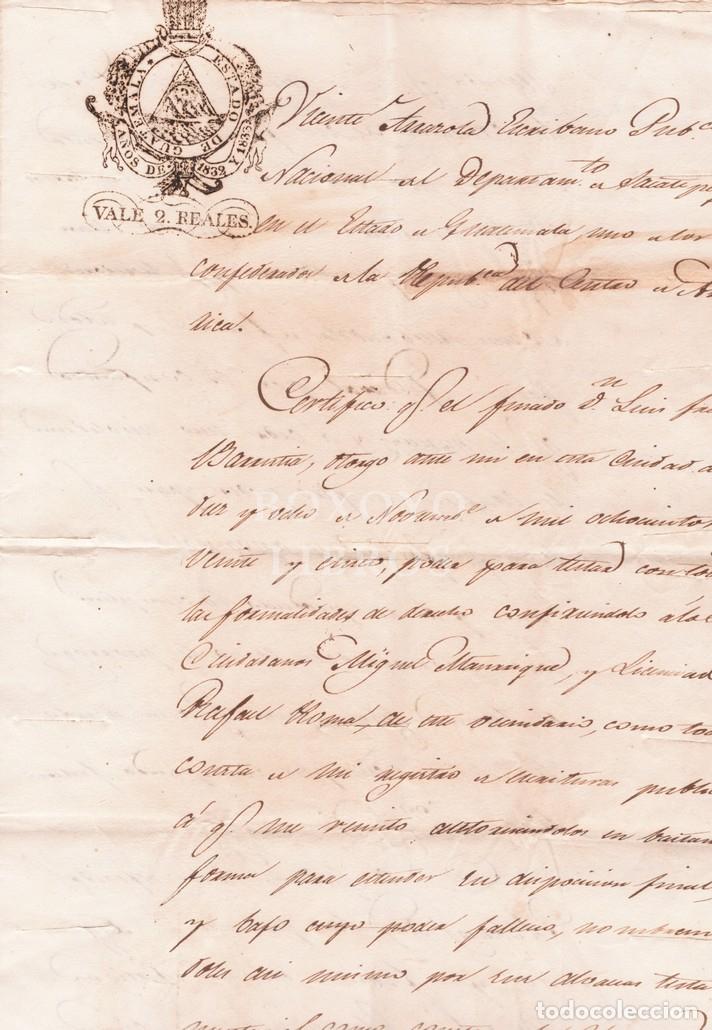 ESTADO DE GUATEMALA
AÑOS DE 1832 Y 1833
VALE 2. REALES.
Vicente Escribano Pub.co
Nacional del Departam.to de
en el Estado de Guatemala, uno de los
confederados de la Repub.ca del Centro de Am
rica.
Certifico q.e el finado d.n Luis
Barrutia, otorgo ante mi en esta Ciudad a
diez y ocho de Novemb.e de mil ochocientos
veinte y cinco, poder para testar con to
las formalidades de derecho confiriendolo á los
Ciudadanos Miguel Manrique, y Licenciad
Rafael Roma, de este vecindario, como todo
consta de mi registro de escrituras public
á q.e me remito autorizandolos en bastan
forma para estender su disposicion final
y bajo cuyo poder fallecio, nombran
doles asi mismo por sus alvaceas testa
BOXOYO
LIBROS
todocoleccion